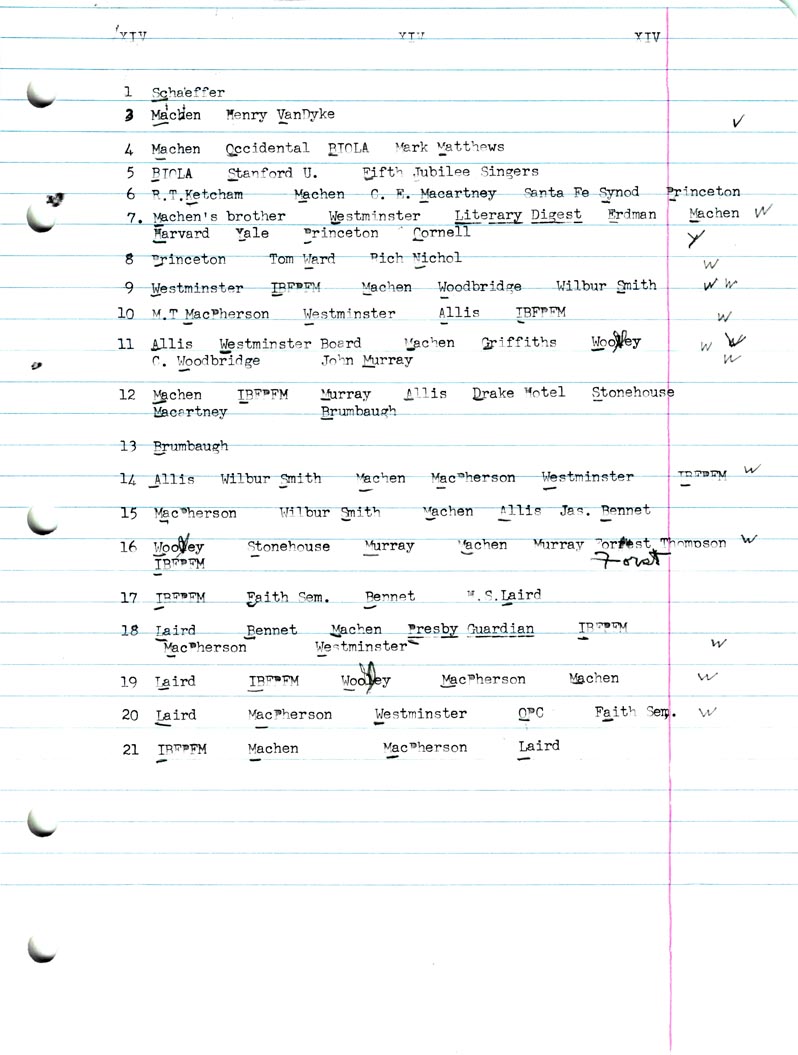 XIV XIV XIV
1 Schaeffer
3 Machen Henry VanDyke V
4 Machen Occidental BIOLA Mark Matthews
5 BIOLA Stanford U. Fifth Jubilee Singers
6 R.T.Ketcham Machen C. E. Macartney Santa Fe Synod Princeton
7. Machen's brother Westminster Literary Digest Erdman Machen W
Harvard Yale Princeton Cornell Y
8 Princeton Tom Ward Rich Nichol W
9 Westminster IBFPFM Machen Woodbridge Wilbur Smith W W
10 M.T MacPherson Westminster Allis IBFPFM W
11 Allis Westminster Board Machen Griffiths Woolley W W
C. Woodbridge John Murray W
12 Machen IBFPFM Murray Allis Drake Hotel Stonehouse
Macartney Brumbaugh
13 Brumbaugh
14 Allis Wilbur Smith Machen MacPherson Westminster IBFPFM W
15 MacPherson Wilbur Smith Machen Allis Jas. Bennet
16 Woolley Stonehouse Murray Machen Murray Forrest Thompson W
IBFPFM Forst
17 IBFPFM Faith Sem. Bennet H.S.Laird
18 Laird Bennet Machen Presby Guardian IBFPFM
MacPherson Westminster W
19 Laird IBFPFM Woolley MacPherson Machen W
20 Laird MacPherson Westminster OPC Faith Sem. W
21 IBFPFM Machen MacPherson Laird